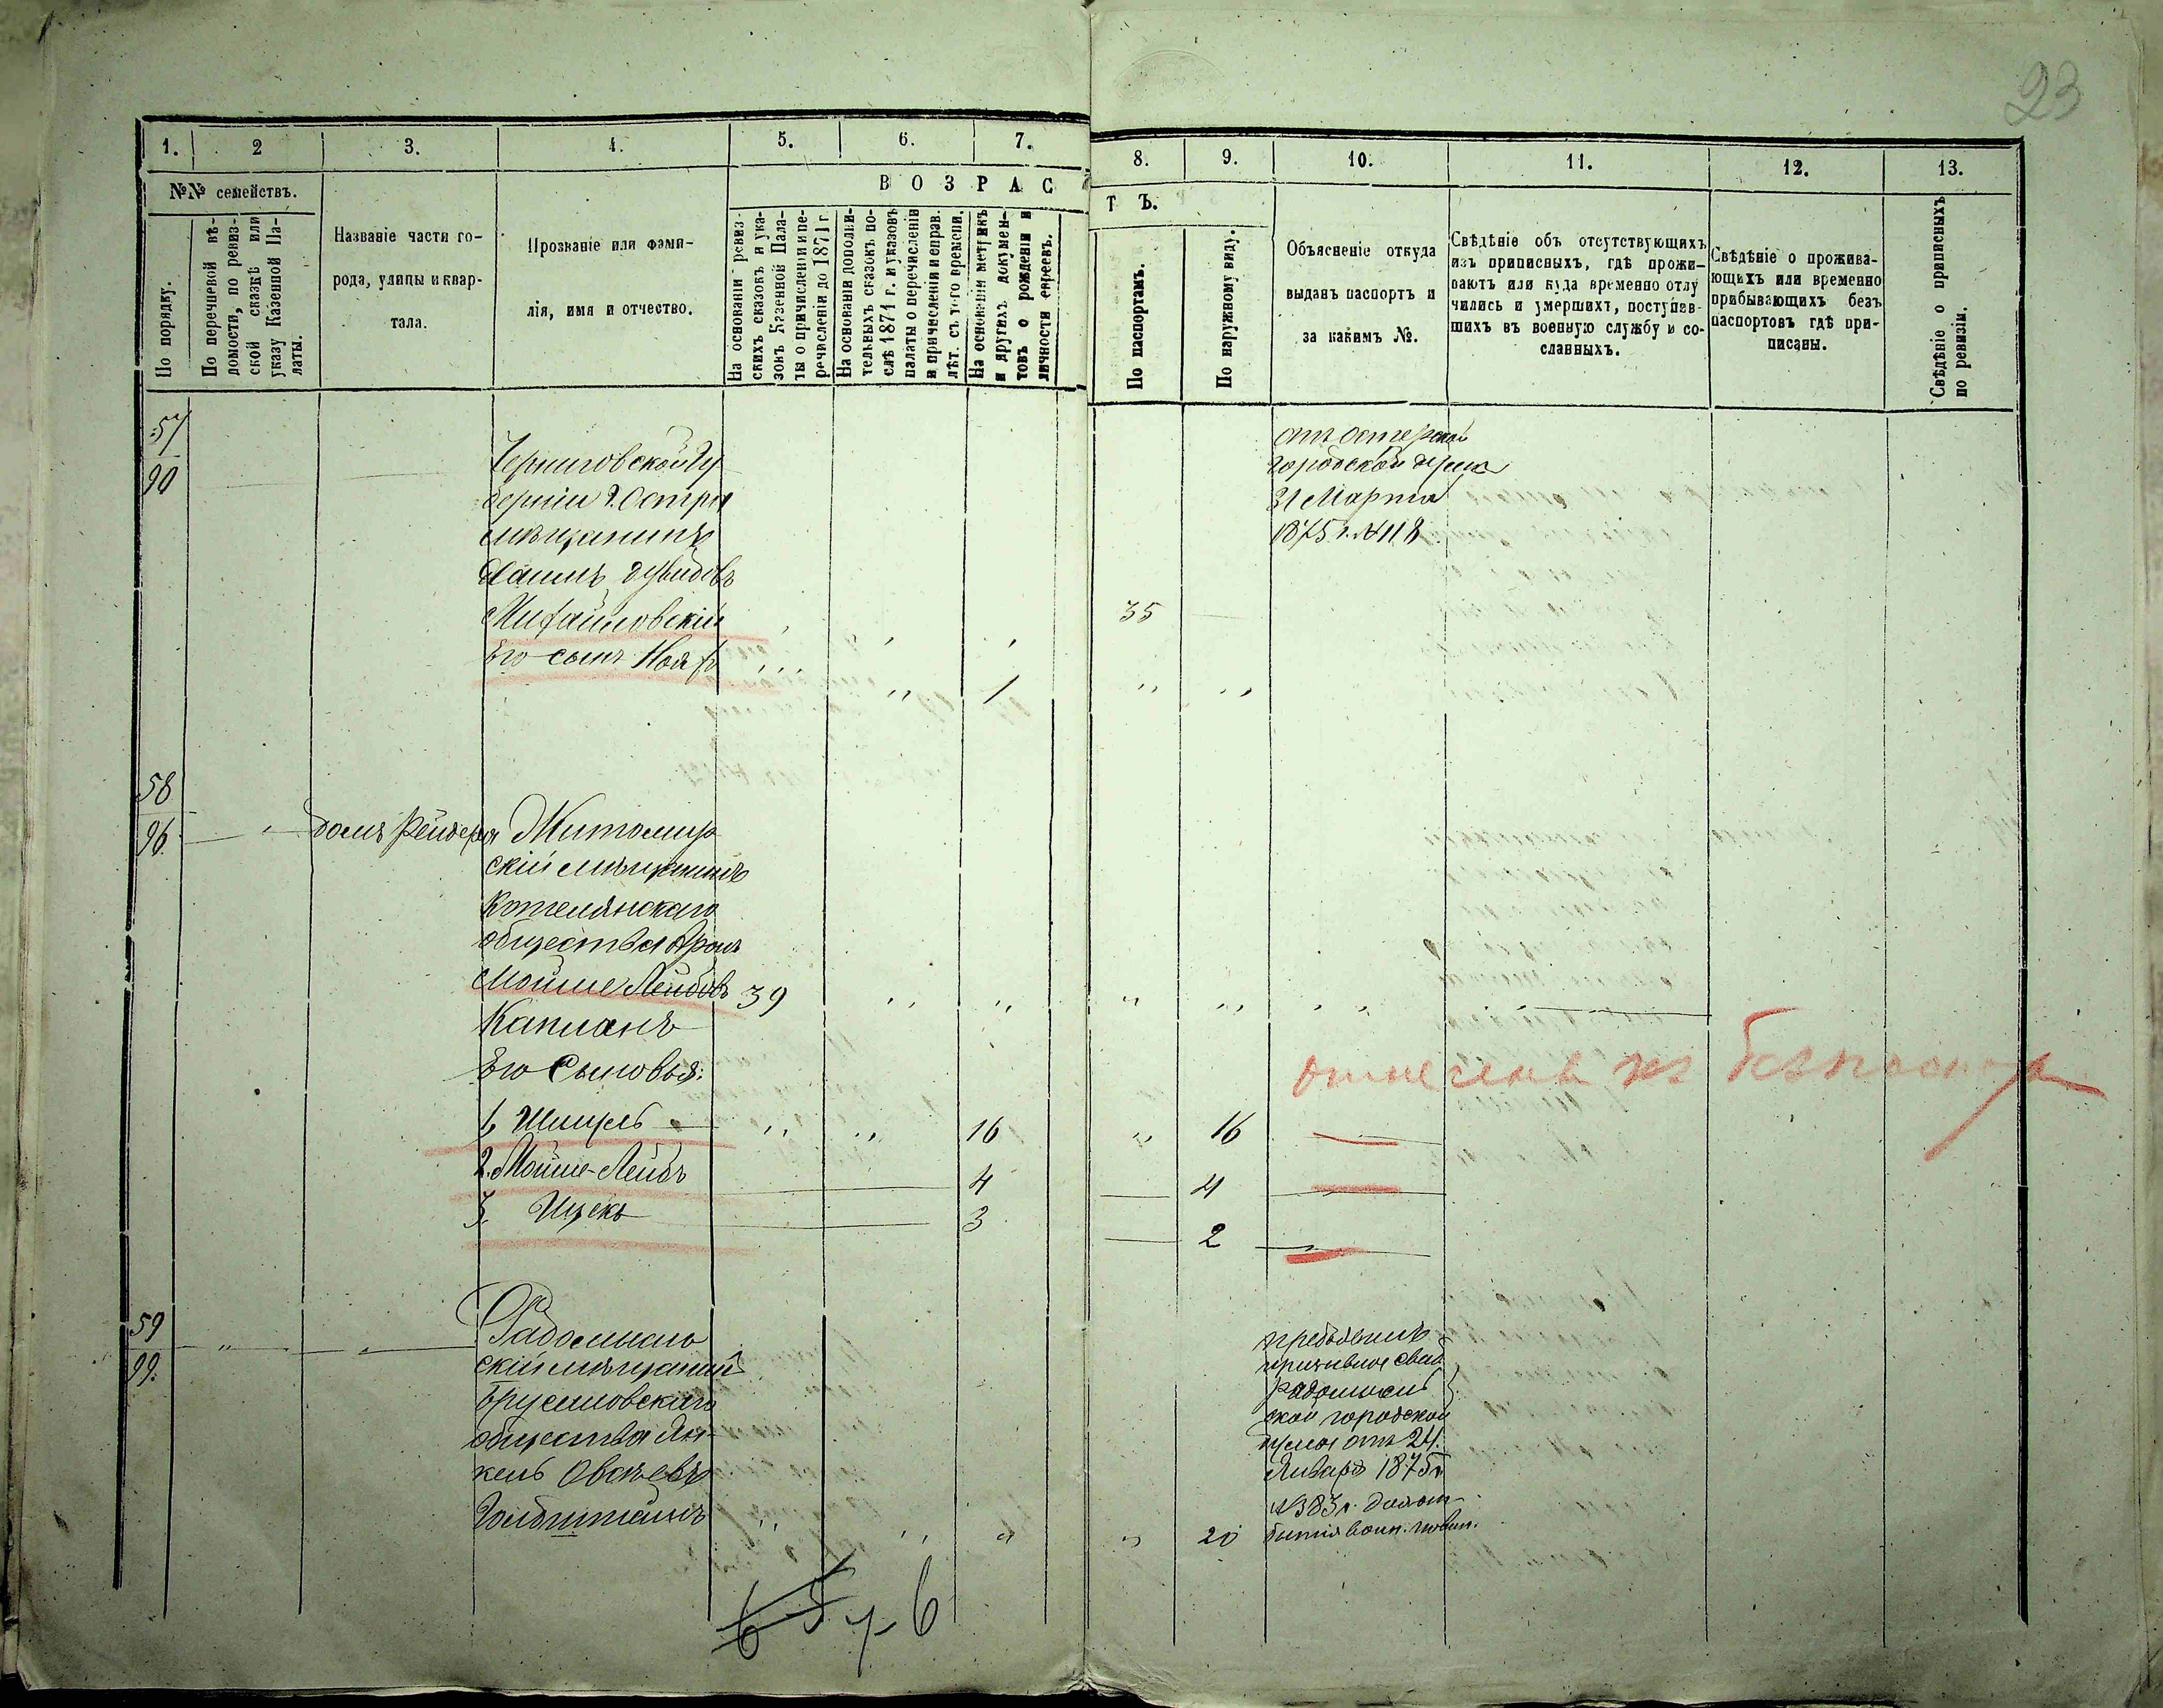 23
1. 2 3. 4. 5. 6. 7. 8. 9. 10. 11. 12. 13.
№№ семействъ.
По порядку.
По перечневой вѣ-
домости, по ревиз-
ской сказкѣ или
указу Казенной Па-
латы.
Названіе части го-
рода, улицы и квар-
тала.
Прозваніе или фами-
лія, имя и отчество.
ВОЗРАСТЪ.
На основаніи ревиз-
скихъ сказокъ и ука-
зовъ Казенной Пала-
ты о причисленіи и пе-
речисленіи до 1871 г
На основаніи дополни-
тельныхъ сказокъ по-
слѣ 1871 г. и указовъ
палаты о перечисленіи
и причисленіи и исправ.
лѣт. съ того времени.
На основаніи метрикъ
и другихъ докумен-
товъ о рожденіи и
личности евреевъ.
По паспортамъ.
По наружному виду.
Объясненіе откуда
выданъ паспортъ и
за какимъ №.
Свѣдѣніе объ отсутствующихъ
изъ приписныхъ, гдѣ прожи-
ваютъ или куда временно отлу
чились и умершихъ, поступив-
шихъ въ военную службу и со-
сланныхъ.
Свѣдѣніе о прожива-
ющихъ или временно
прибывающихъ безъ
паспортовъ гдѣ при-
писаны.
Свѣдѣніе о приписныхъ
по ревизіи.
57
90
Черниговской Гу
берніи г. Остра
мѣщанинъ
Хаимъ Дувидовъ
Михайловскій 35
Его сынъ Ноях ,, ,, 1 ,, ,,
отъ Остерской
городской думы
31 Марта
1875 г. № 118
58
96 домъ Рейдера Житомир
скій мѣщанинъ
Котелянскаго
общества Аронъ
Мойше Лейбовъ 39 ,, ,, ,, ,, ,,
Капланъ
Его Сыновья:
отнесенъ къ
1, Шмуль ,, ,, 16 ,, 16
2. Мойше-Лейбъ 4 4
3. Ицекъ 3 2
59
99. Радомысль
скій мѣщанин
Брусиловскаго
общества Ян-
кель Овсѣевъ
Голбштейнъ ,, ,, ,, ,, 20
предъявилъ
призывное свид.
Радомысль
ской городской
думы отъ 24.
Января 1875 г.
№ 383 г.
бытія воин. повин.
6 5 7 6